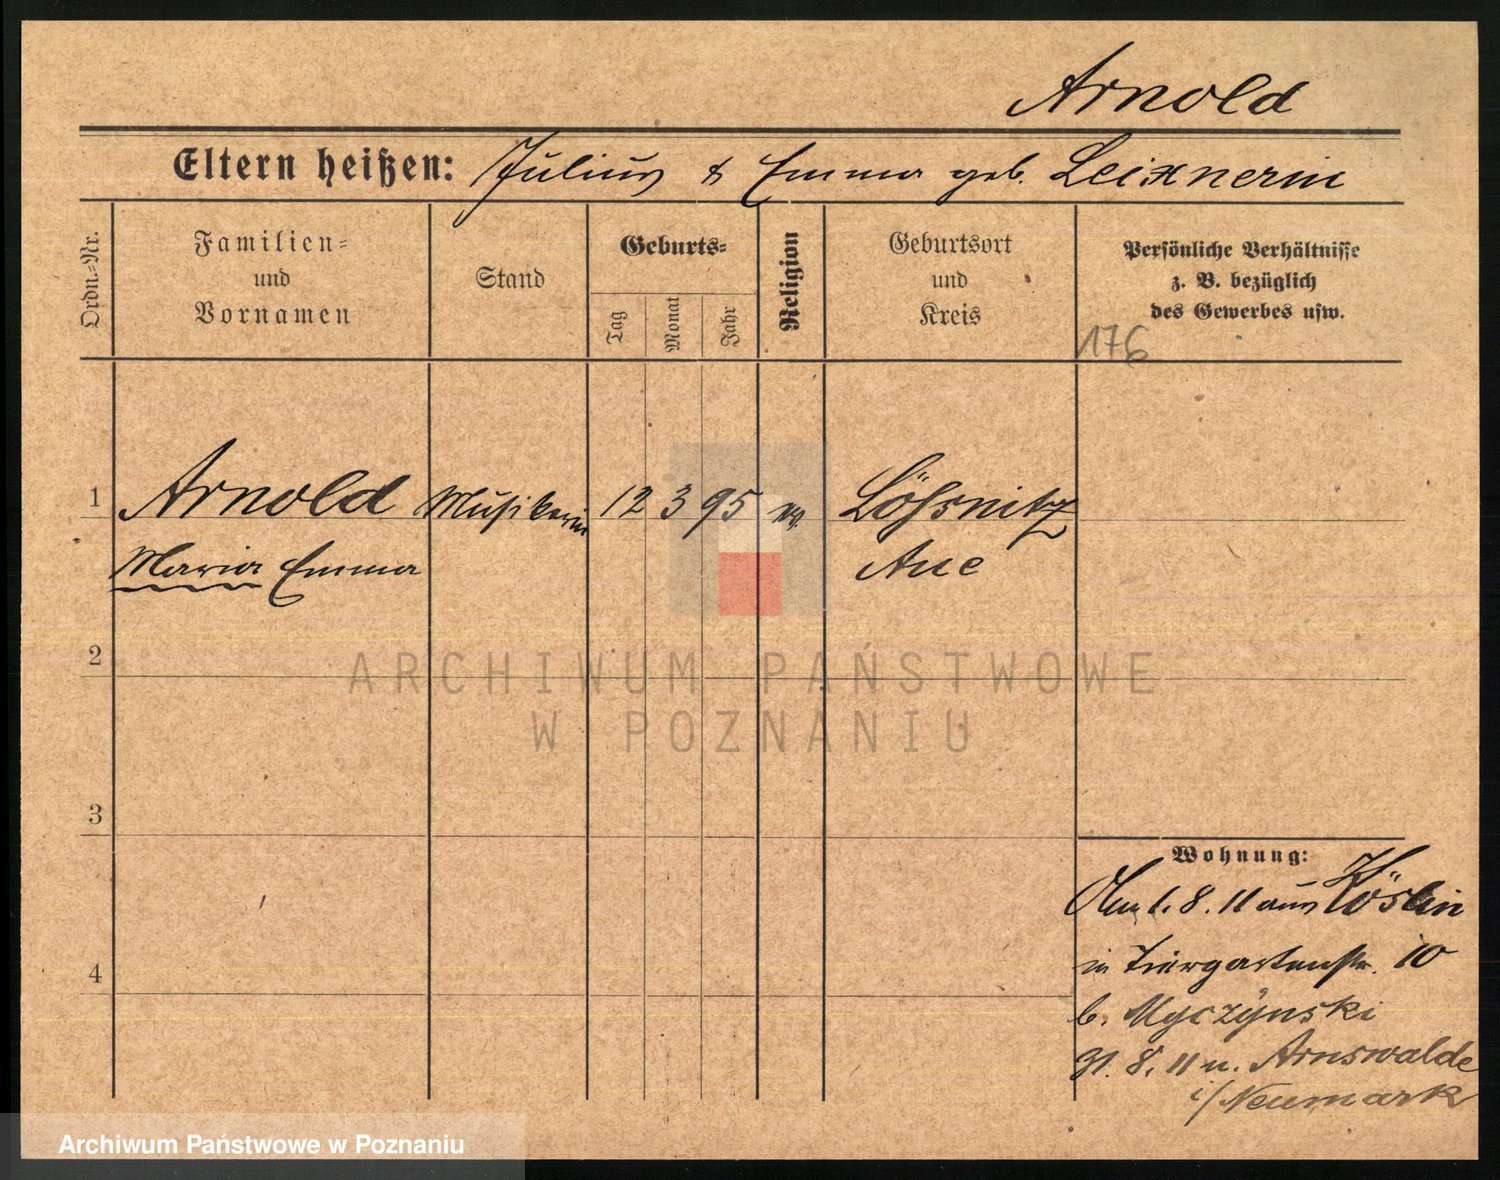 Arnold
Eltern heißen: Julius & Emma geb. Leixnerin
Ordn.=Nr.
Familien=
und
Vornamen
Stand
Geburts=
Tag
Monat
Jahr
Religion
Geburtsort
und
Kreis
Persönliche Verhältnisse
z. B. bezüglich
des Gewerbes usw.
176
1 Arnold Musikerin 12 3 95 Lößnitz
Maria Emma Aue
2
ARCHIWUM PAŃSTWOWE
W POZNANIU
3
Wohnung:
Am 1. 8. 11 aus Köslin
4 in Tiergartenstr. 10
b. Myczÿnski
31. 8. 11 n. Arnswalde
i/ Neumark
Archiwum Państwowe w Poznaniu